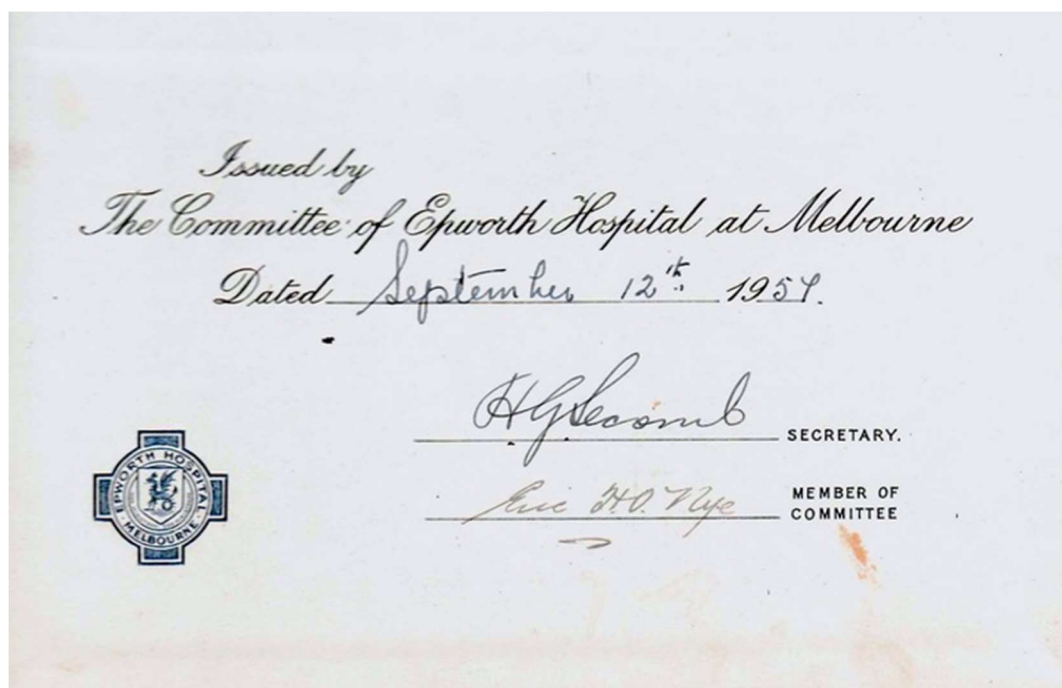 Issued by
The Committee of Epworth Hospital at Melbourne
Dated September 12th 1957.
HGSecomb SECRETARY.
Eric H.O. Nye MEMBER OF
COMMITTEE
EPWORTH HOSPITAL
MELBOURNE